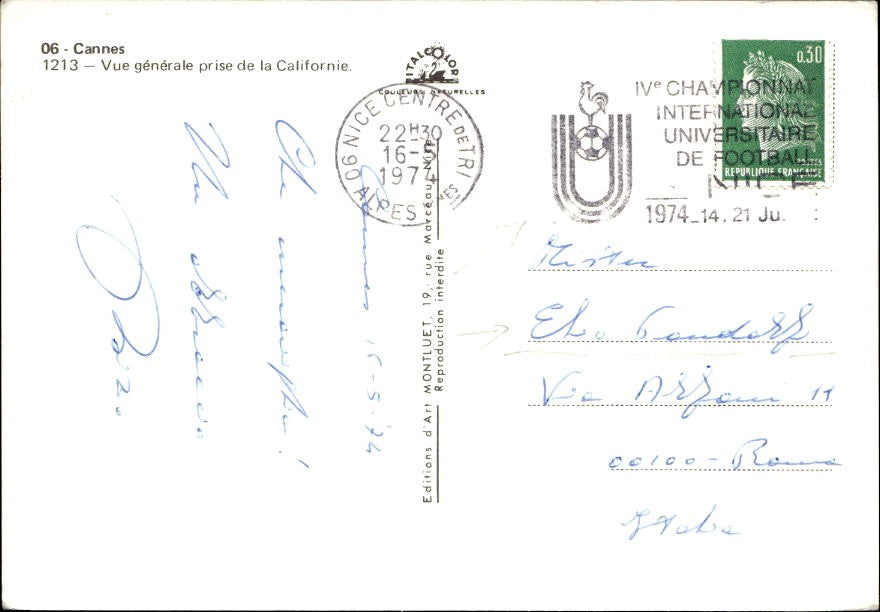 06 - Cannes
1213 — Vue générale prise de la Californie.
ITALCOLOR
COULEURS NATURELLES
06 NICE CENTRE DE TRI
22H30
16-5
1974
ALPES
IVe CHAMPIONNAT
INTERNATIONAL
UNIVERSITAIRE
DE FOOTBALL
NICE
1974_14.21 Ju.
0,30
POSTES
REPUBLIQUE FRANÇAISE
Cannes 16-5-74
Che meraviglia!
Un abbraccio
Editions d'Art MONTLUET, 19, rue Marceau, Nice
Reproduction interdite
Mister
Via
00100-Roma
Italia